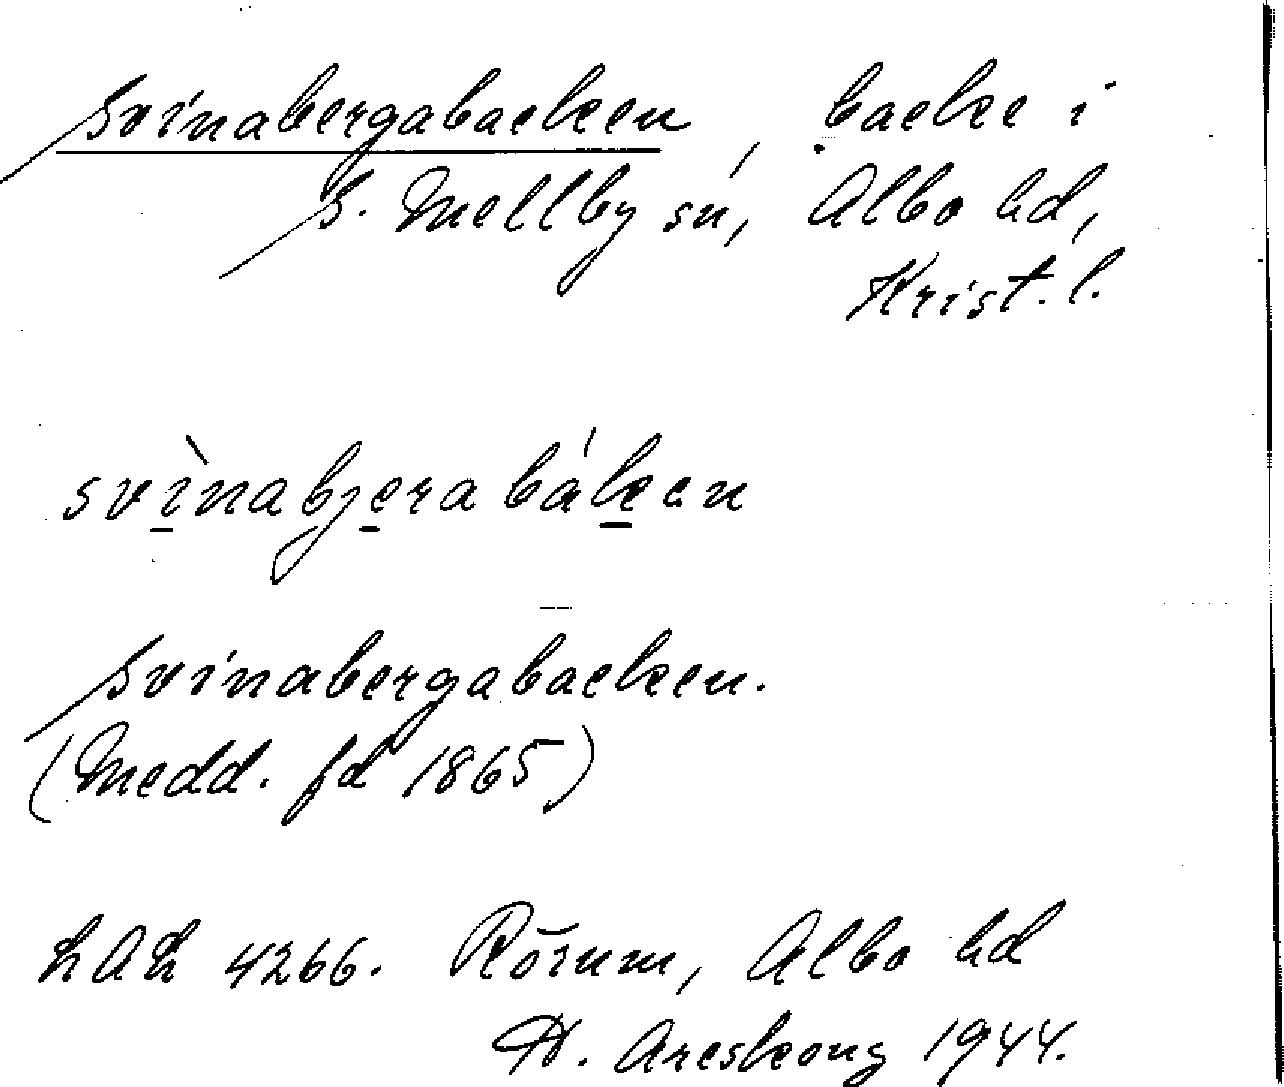 Svinabergabacken, backe i
S. Mellby sn, Albo hd,
Krist. l.
svìnabjera bákean
Svinabergabacken.
(Medd. fd 1865)
LAL 4266. Rörum, Albo hd
H. Areskoug 1944.